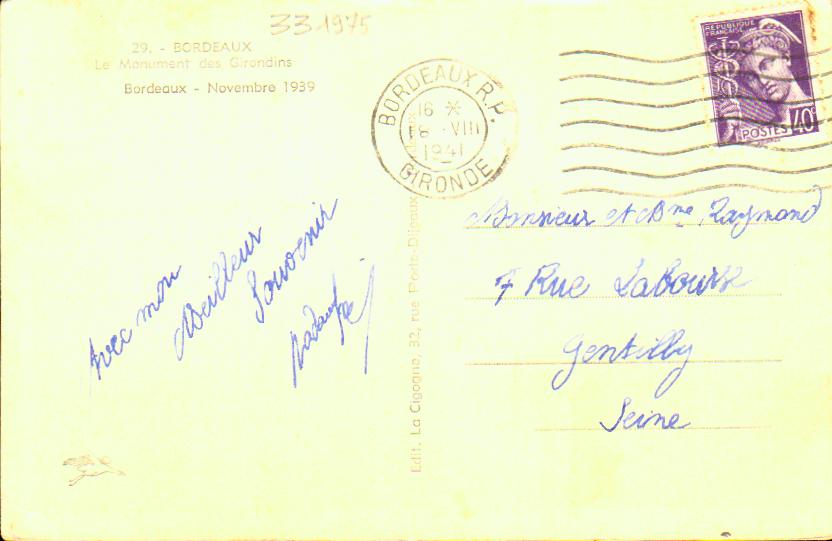 33 1975
29. - BORDEAUX
Le Monument des Girondins
Bordeaux - Novembre 1939
BORDEAUX R.P.
16 *
18 - VIII
1941
GIRONDE
REPUBLIQUE
FRANÇAISE
POSTES 40
Avec mon
Meilleur
Souvenir
Monsieur et Mme Raymond
7 Rue
Gentilly
Seine
Edit. La Cigogne, 32, rue Porte-Dijeaux